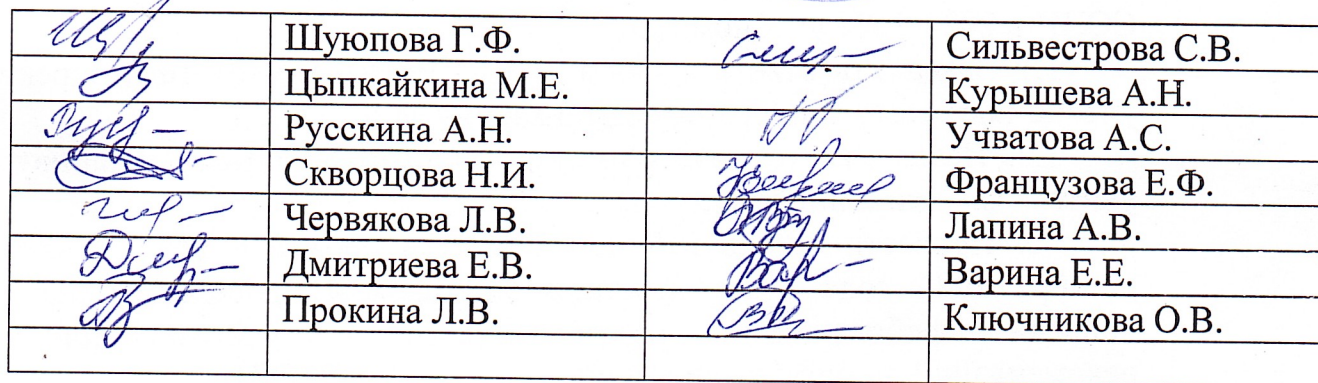 Шуюпова Г.Ф. Сильвестрова С.В.
Цыпкайкина М.Е. Курышева А.Н.
Русскина А.Н. Учватова А.С.
Скворцова Н.И. Французова Е.Ф.
Червякова Л.В. Лапина А.В.
Дмитриева Е.В. Варина Е.Е.
Прокина Л.В. Ключникова О.В.